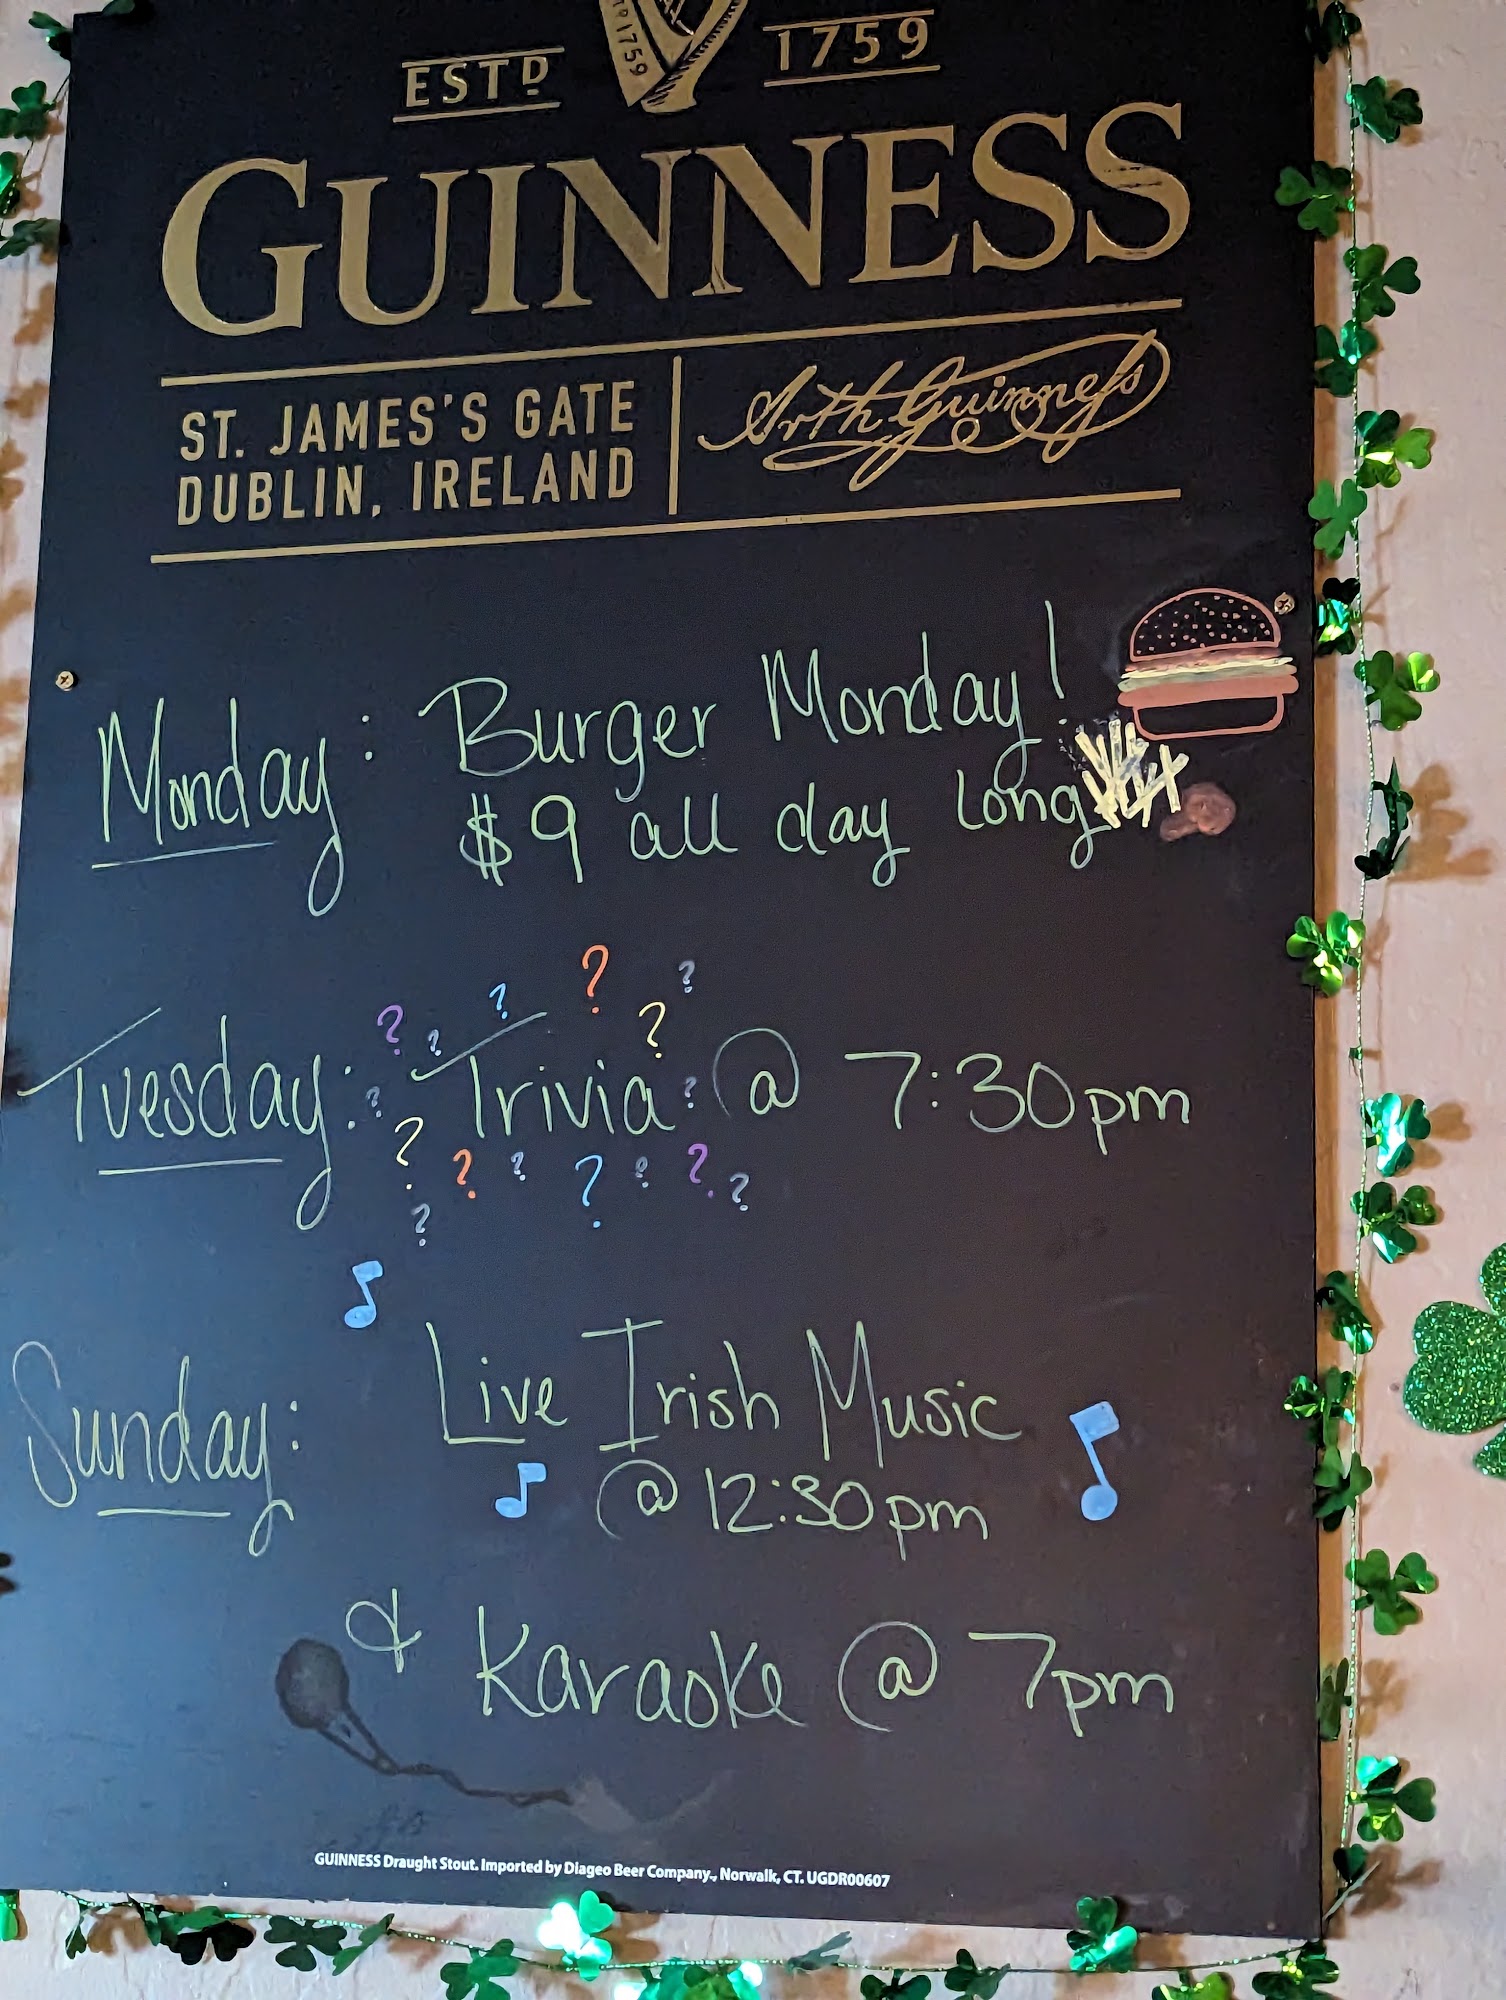 ESTD 1759
1759
GUINNESS
ST. JAMES'S GATE
DUBLIN, IRELAND
Arth Guinness
Monday: Burger Monday!
$9 all day long
Tuesday: Trivia @ 7:30pm
Sunday: Live Irish Music
@ 12:30pm
& Karaoke @ 7pm
GUINNESS Draught Stout. Imported by Diageo Beer Company., Norwalk, CT. UGDR00607